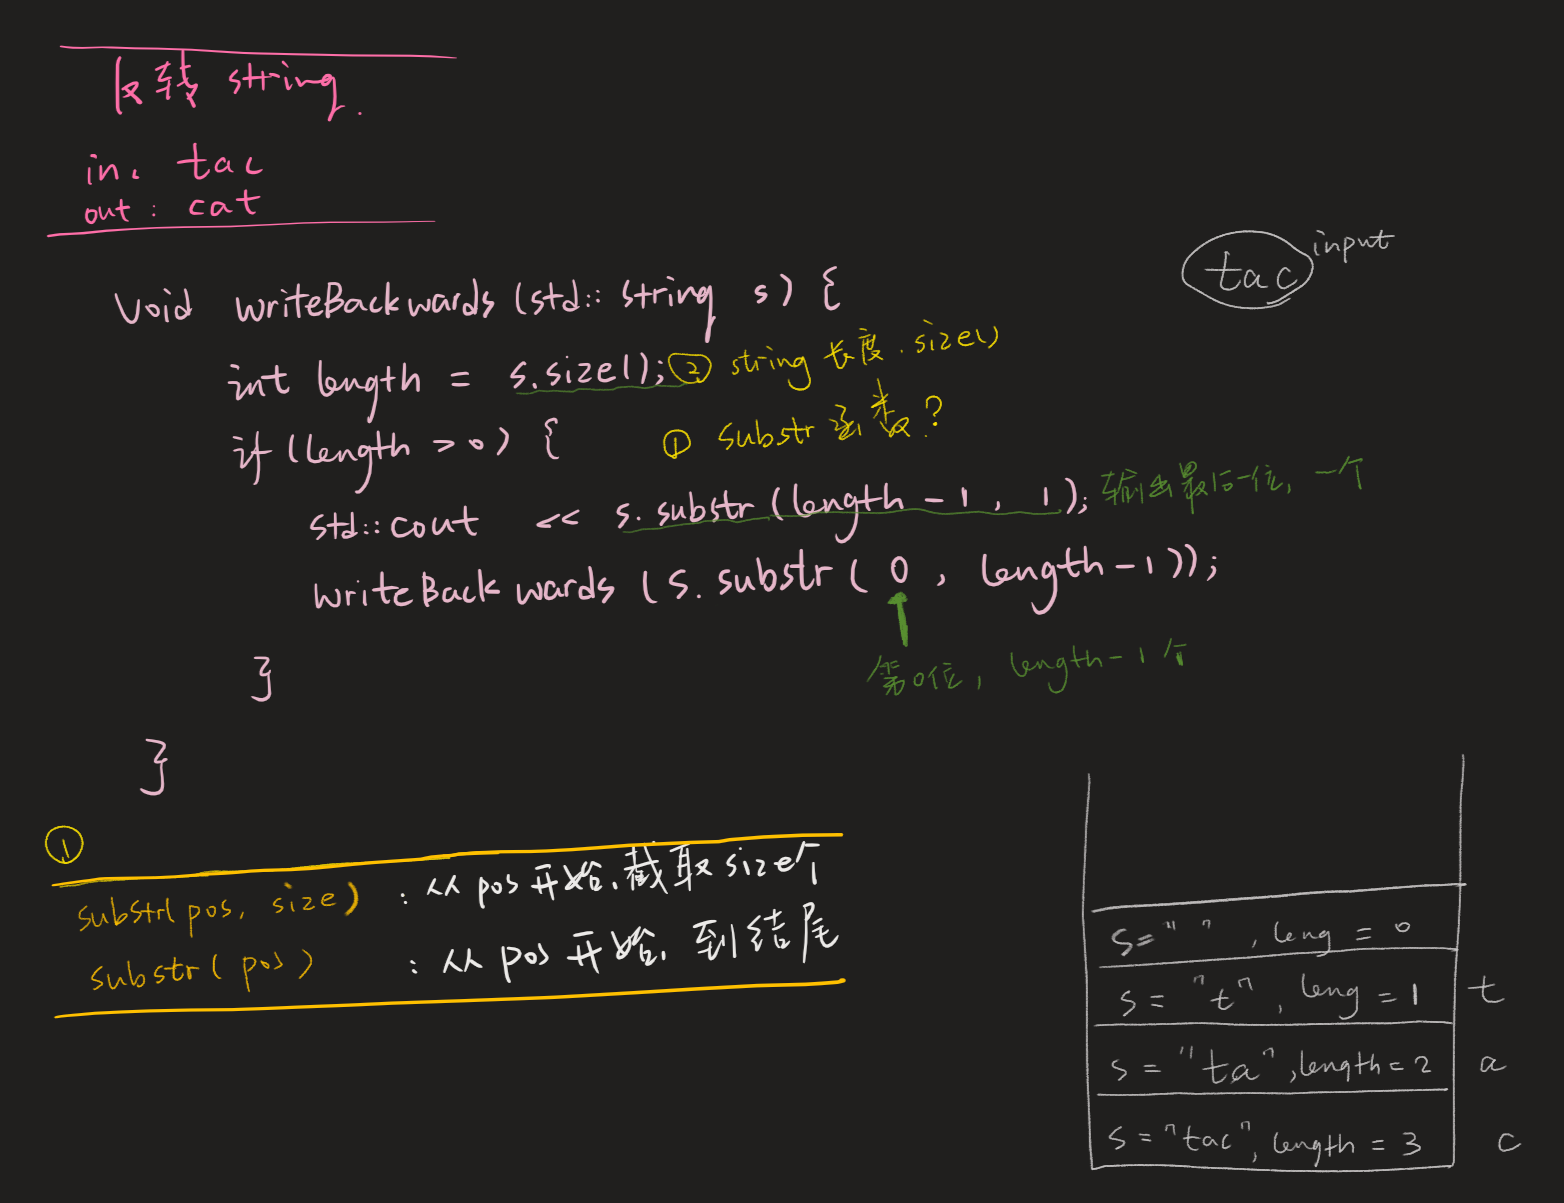 反转 string.
in. tac
out: cat
tac input
void writeBackwards (std::string s) {
int length = s.size(); ② string 长度 .size()
if (length > 0) { ① substr 函数?
std::cout << s.substr(length-1, 1); 输出最后一位, 一个
writeBackwards (s.substr(0, length-1));
第0位, length-1个
}
}
①
substr(pos, size) : 从 pos 开始.截取 size个
substr(pos) : 从 pos 开始. 到结尾
s=" ", leng = 0
s = "t", leng = 1 t
s = "ta", length=2 a
s="tac", length = 3 c